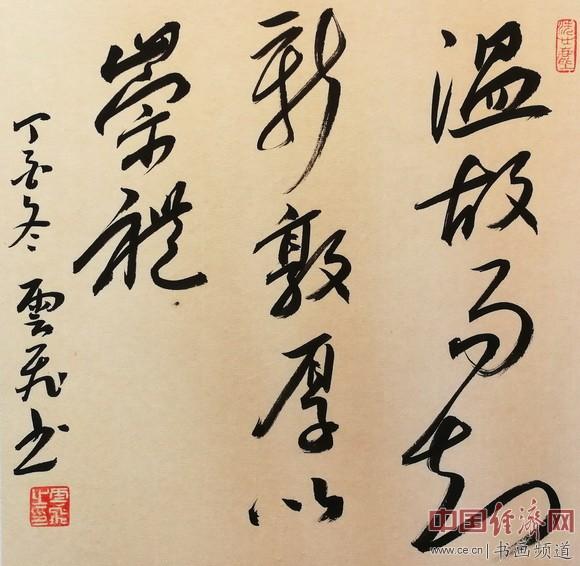 温故而知
新敦厚以
崇礼
丁酉冬 雲飛书
中国经济网
www.ce.cn 书画频道